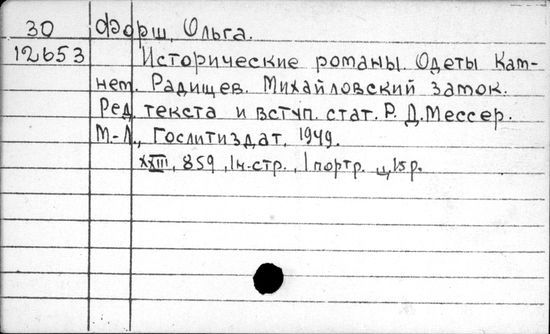 30 Форш, Ольга.
12653 Исторические романы. Одеты Кам-
нем. Радищев. Михайловский замок.
Ред. текста и вступ. стат. Р. Д. Мессер.
М.-Л., Гослитиздат, 1949.
XXIII, 859, 1 н. стр., 1 портр. ц. 15 р.